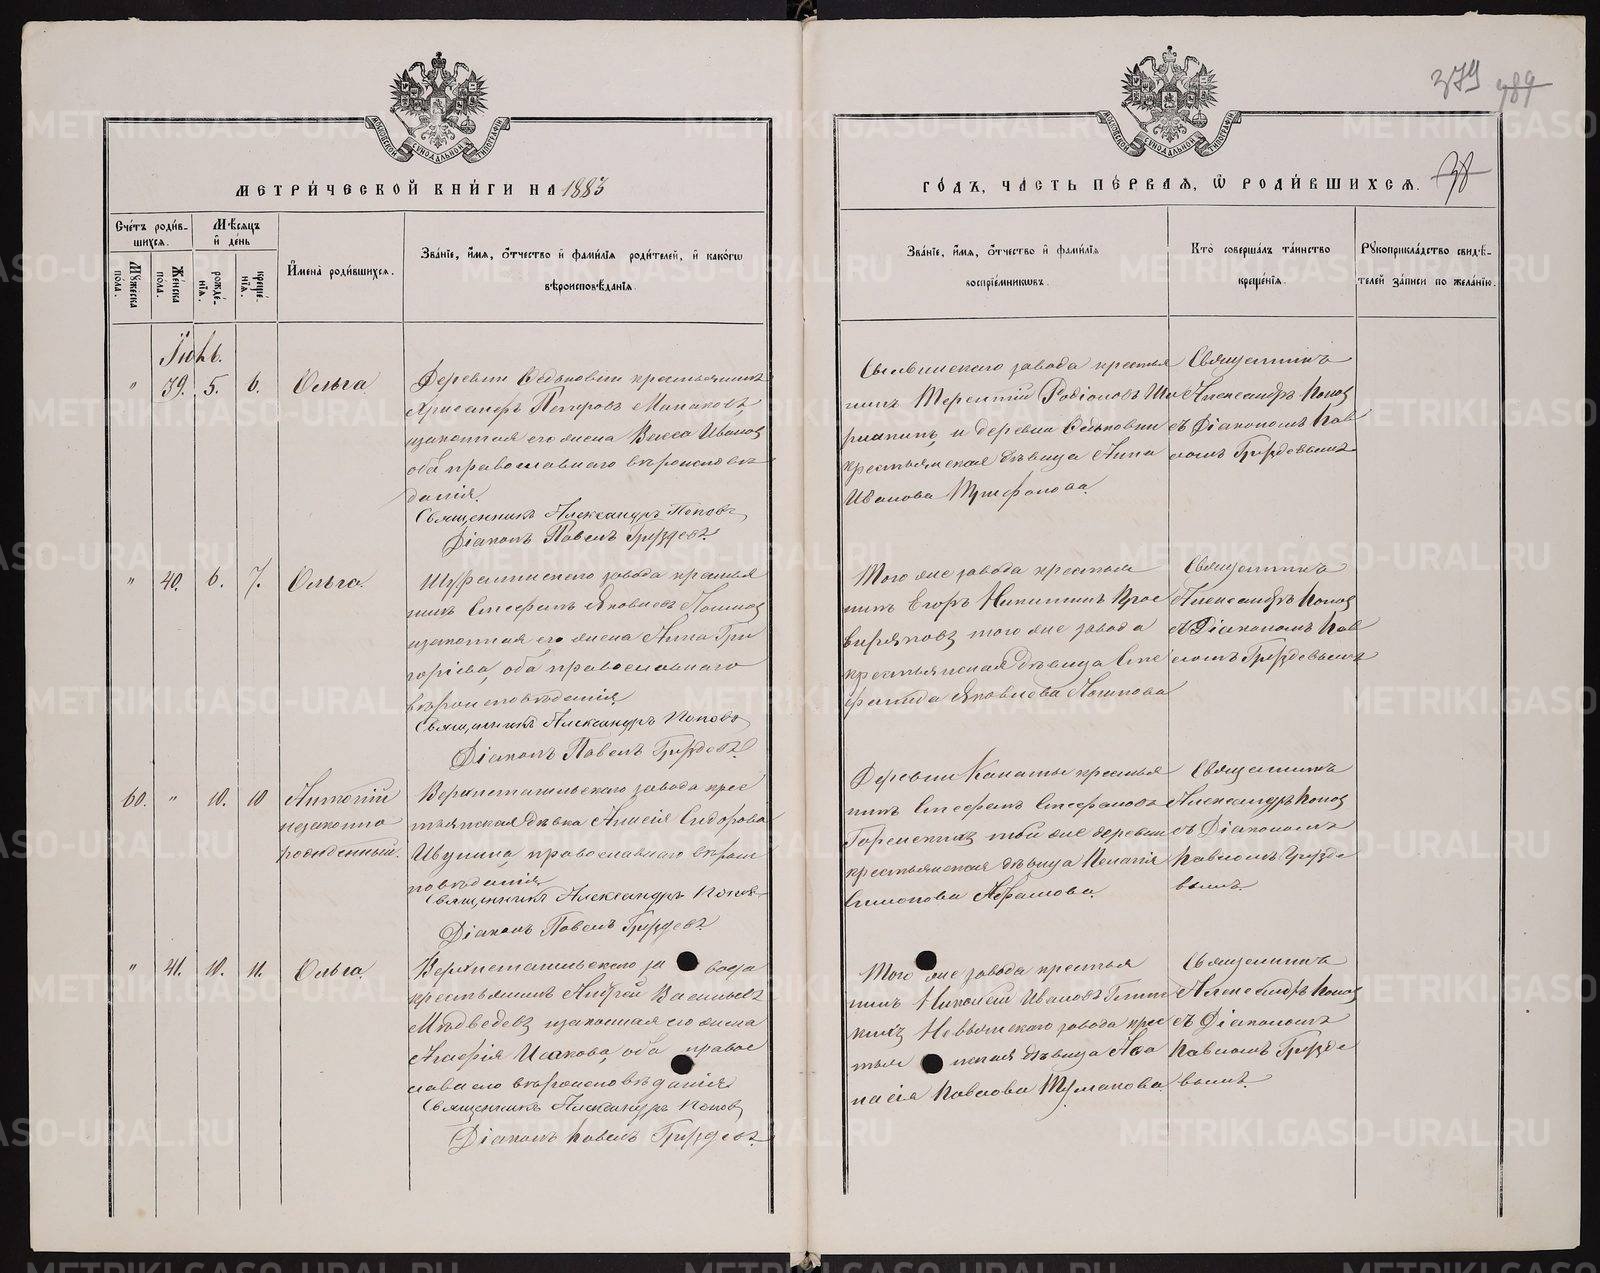 379 989
98
МОСКОВСКОЙ СУНОДАЛЬНОЙ ТИПОГРАФІИ
МЕТРИ́ЧЕСКОЙ КНИ́ГИ НА 1883
Сче́тъ роди́в-
шихся.
Мѣсяцъ
и҆ де́нь
Мꙋжеска
пола.
Же́нска
пола.
рожде́-
нїѧ.
креще́-
нїѧ.
И҆мена̀ роди́вшихся.
Зва́нїе, и҆́мѧ, ѻ҆́тчество и҆ фамі́лїѧ роди́телей, и҆ како́гѡ
вѣроисповѣ́данїѧ.
Іюнь.
" 39. 5. 6. Ольга
Деревни Седьковки крестьянинъ
Хрисанфъ Петровъ Минаковъ
и законная его жена Васса Иванов
оба православнаго вѣроисповѣ
данія.
Священникъ Александръ Поповъ
Діаконъ Павелъ Груздевъ.
" 40. 6. 7. Ольга.
завода крестья
нинъ Стефанъ Яковлевъ
и законная его жена Анна Гри
горіева, оба православнаго
вѣроисповѣданія
Священникъ Александръ Поповъ
Діаконъ Павелъ Груздевъ
60. " 10. 10 Антоній
незаконно
рожденный.
Верхнетагильскаго завода крес
тьянская дѣвка Анисія Сидорова
Ивунина православнаго вѣроис
повѣданія
Священникъ Александръ Поповъ
Діаконъ Павелъ Груздевъ
" 41. 10. 11. Ольга.
Верхнетагильскаго завода
крестьянинъ Андрей Васильевъ
Мѣдведевъ и законная его жена
Агафія Исакова, оба правос
лавнаго вѣроисповѣданія
Священникъ Александръ Поповъ
Діаконъ Павелъ Груздевъ
ГО́ДЪ, ЧА́СТЬ ПЕ́РВАѦ, Ѡ҆ РОДИ́ВШИХСѦ.
Зва́нїе, и҆́мѧ, ѻ҆́тчество и҆ фамі́лїѧ
воспрїе́мникѡвъ.
Кто̀ соверша́лъ та́инство
креще́нїѧ.
Рꙋкоприкла́дство свидѣ́-
телей за́писи по жела́нїю.
Сылвинскаго завода крестья
нинъ Терентій Родіоновъ
и деревни Седьковки
крестьянская дѣвица Анна
Иванова Трифонова.
Священникъ
Александръ Попов
съ Діакономъ Пав
ломъ Груздевымъ
Того же завода крестья
нинъ Егоръ Никитинъ Прос
виряковъ того же завода
крестьянская дѣвица Сте
фанида Яковлева
Священникъ
Александръ Попов
съ Діакономъ Пав
ломъ Груздевымъ
Деревни крестья
нинъ Стефанъ Стефановъ
Горенскихъ той же деревни
крестьянская дѣвица Пелагія
Симонова
Священникъ
Александръ Попов
съ Діакономъ
Павломъ Грузде
вымъ
Того же завода крестья
нинъ Никонъ Ивановъ
Невьянскаго завода крес
тьянская дѣвица Афа
насія Павлова Тумакова.
Священникъ
Александръ Попов
съ Діакономъ
Павломъ Грузде
вымъ.
METRIKI.GASO-URAL.RU